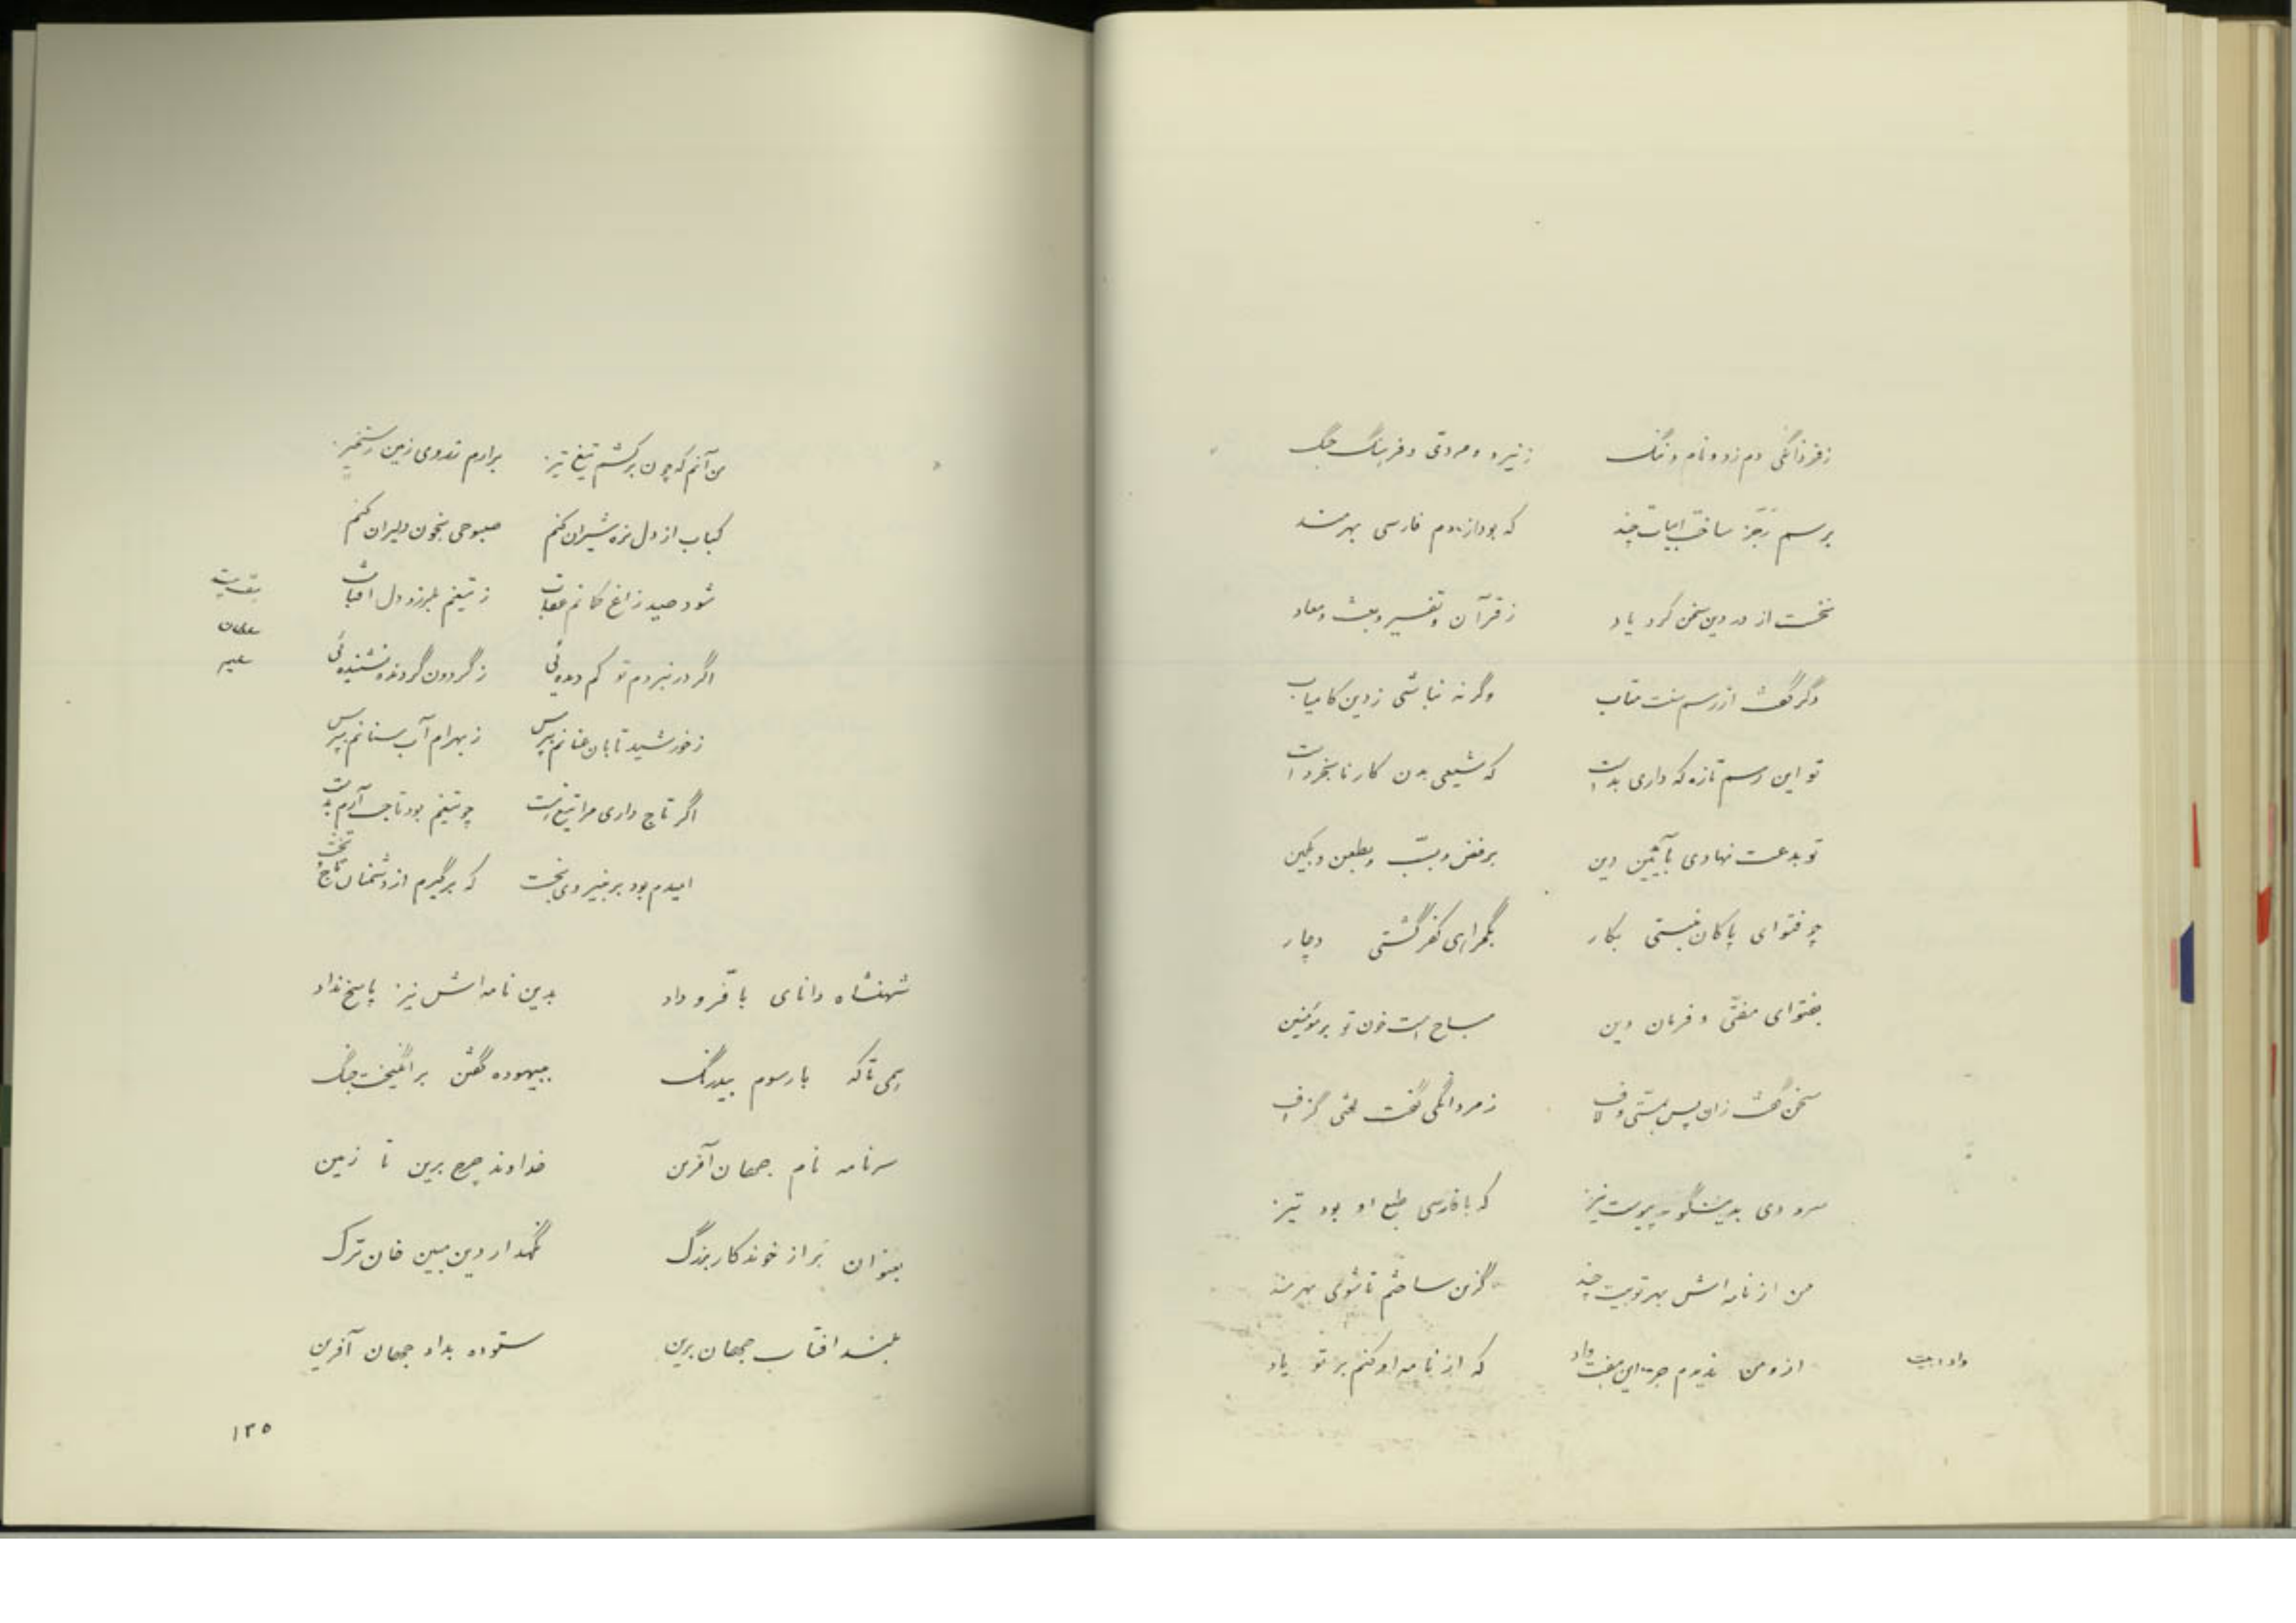 ز فرزانگی دم زد و نام و ننگ ز نیرو و مردی و فرهنگ جنگ
برسم رَجَز ساخت ابیات چند که بود از دم فارسی بهرمند
نخست از در دین سخن کرد یاد ز قرآن و تفسیر و بعث و معاد
دگر گفت از رسم سنت متاب وگرنه نباشی ز دین کامیاب
تو این رسم تازه که داری بد است که شیعی بدن کار نابخرد است
تو بدعت نهادی بآیین دین برفض و بسبّ و بطعن و بکین
چو فتوای پاکان نبستی بکار بگمراهی کفر گشتی دچار
بفتوای مفتی و فرمان دین مباح است خون تو بر مؤمنین
سخن گفت زان پس بمستی و لاف ز مردانگی گفت لختی گزاف
سرودی بدینگونه پیوست نیز که با فارسی طبع او بود تیز
من از نامه‌اش بهر تو بیت چند گزین ساختم تا شوی بهرمند
از و من ندیدم جز این هفت که از نامه او کنم بر تو یاد
من آنم که چون برکشم تیغ تیز برارم ز روی زمین رستخیز
کباب از دل نره شیران کنم صبوحی بخون دلیران کنم
شود صید زاغ کمانم عقاب ز تیغم بلرزد دل آفتاب
اگر در نبردم تو کم دیده‌ئی ز گردون گردنده نشنیده‌ئی
ز خورشید تابان عنانم بپرس ز بهرام آب سنانم بپرس
اگر تاج داری مرا تیغ هست چو تیغم بود تاجت آرم بدست
امیدم بود بر نیروی بخت که برگیرم از دشمنان تاج و تخت
شهنشاه دانای با فرّ و داد بدین نامه‌اش نیز پاسخ نداد
همی تا که بار سوم بیدرنگ ببیهوده گفتن برانگیخت جنگ
سرنامه نام جهان آفرین خداوند چرخ برین تا زمین
بعنوان بر از خوندکار بزرگ نگهدار دین مبین خان ترک
بلند افتاب جهان برین ستوده بداد جهان آفرین
۱۳۵